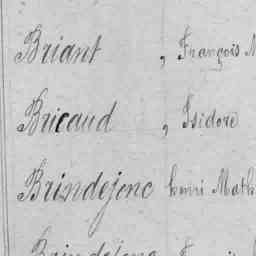 Briant , François M
Bricaud , Isidore
Brindejonc henri Math
Brindejonc